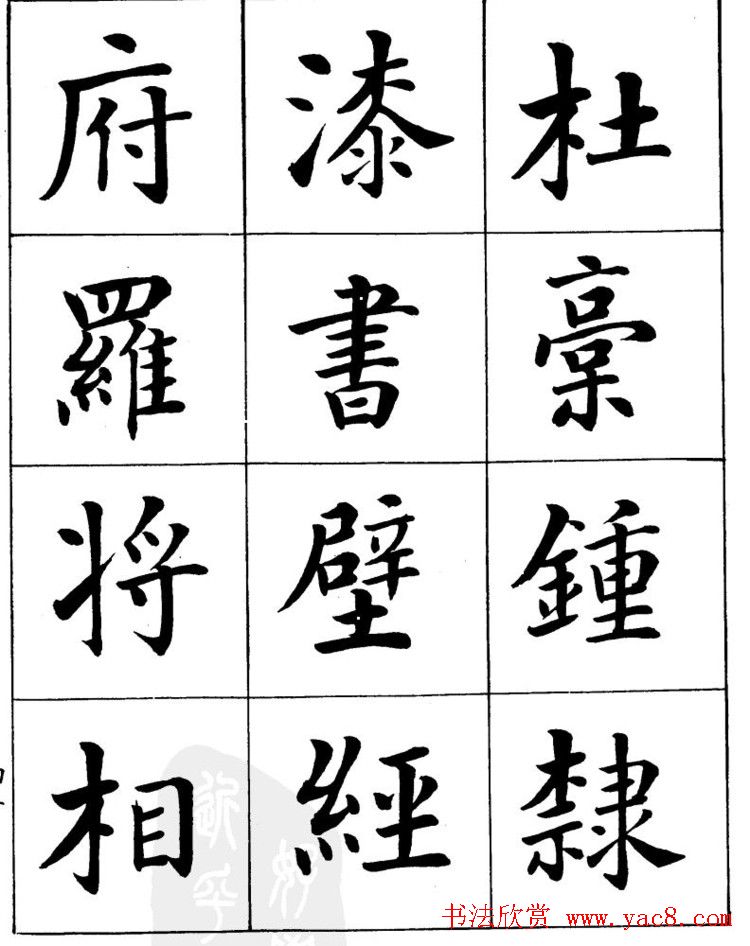 杜稾鍾隸
漆書壁經
府羅将相
书法欣赏 www.yac8.com